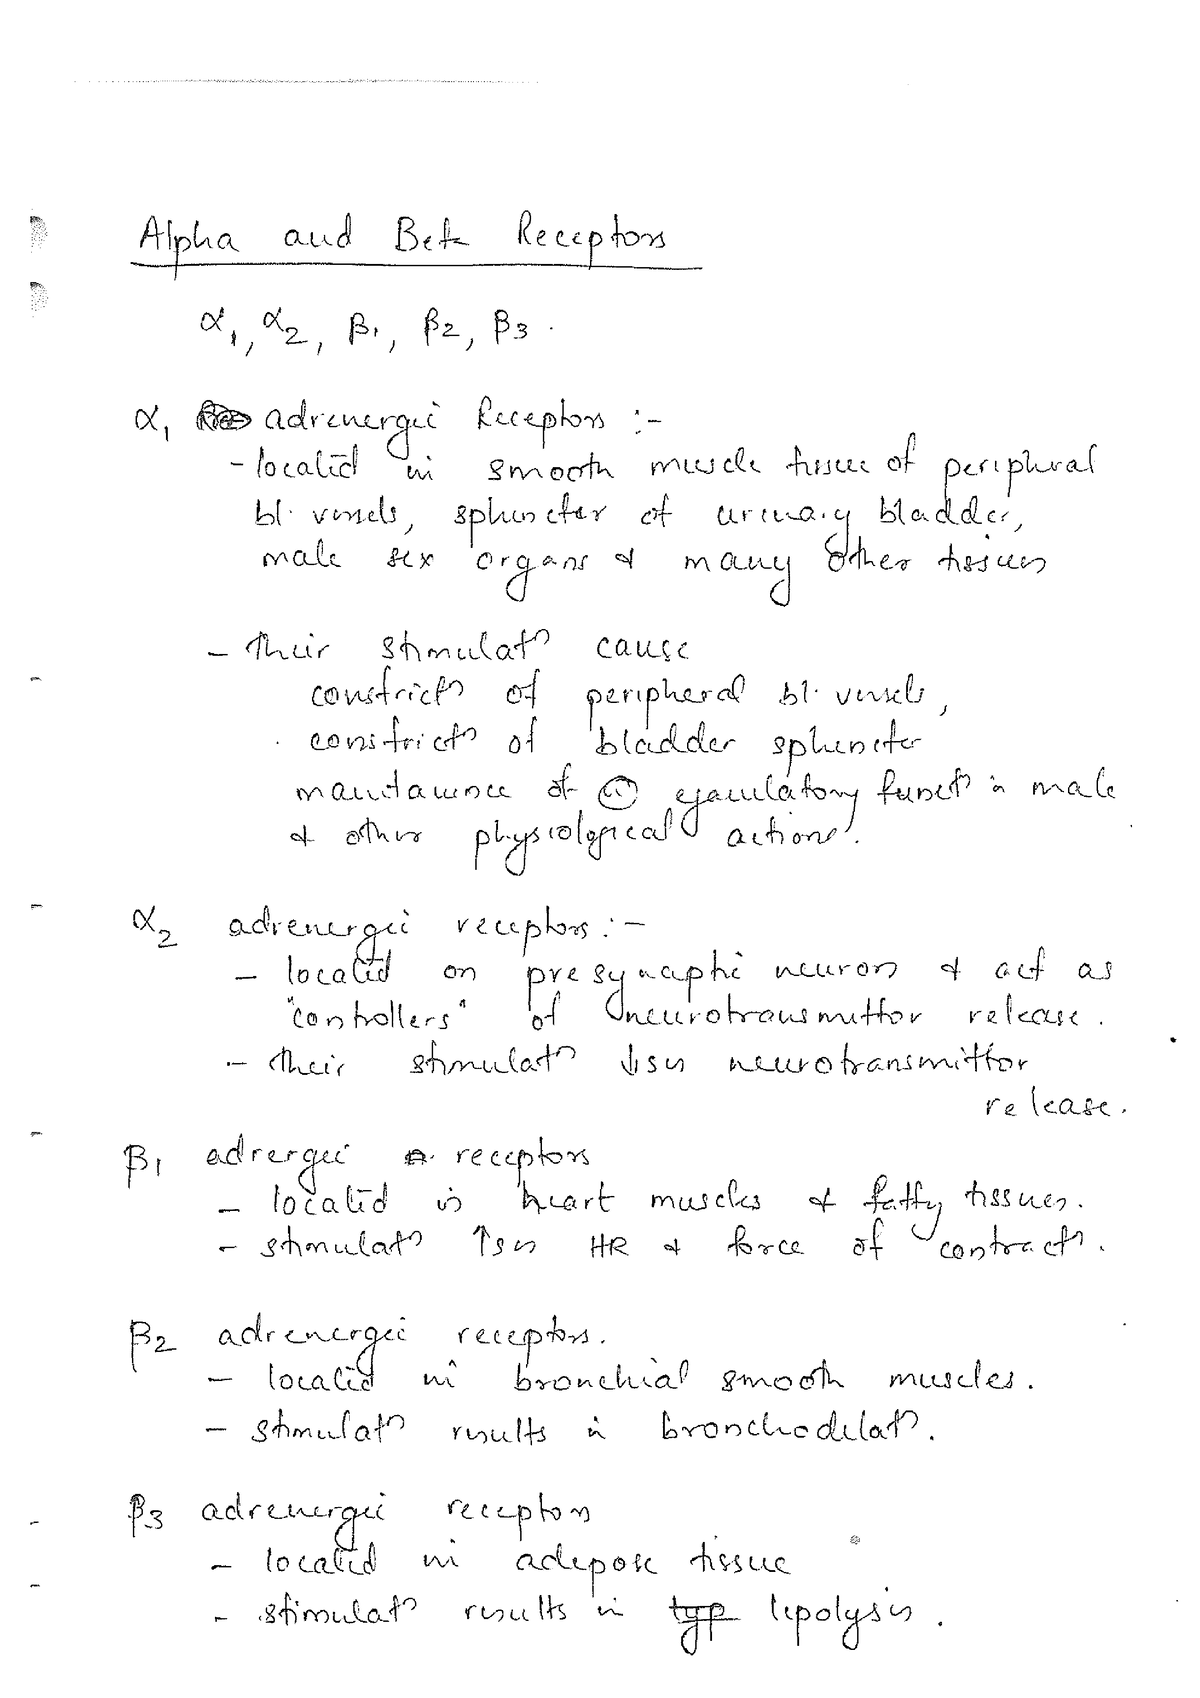 Alpha and Beta Receptors
α1, α2, β1, β2, β3.
α1 adrenergic Receptors :-
- located in smooth muscle tissue of peripheral
bl. vessels, sphincter of urinary bladder,
male sex organs & many other tissues
- Their stimulatn cause
constrictn of peripheral bl. vessels,
constrictn of bladder sphincter
maintainence of ejaculatory functn in male
& other physiological actions.
α2 adrenergic receptors :-
- located on presynaptic neurons & act as
"controllers" of neurotransmittor release.
- Their stimulatn ↓ses neurotransmittor
release.
β1 adrergic receptors
- located in heart muscles & fatty tissues.
- stimulatn ↑ses HR & force of contractn.
β2 adrenergic receptors.
- located in bronchial smooth muscles.
- stimulatn results in bronchodilatn.
β3 adrenergic receptors
- located in adipose tissue
- stimulatn results in typ lipolysis.